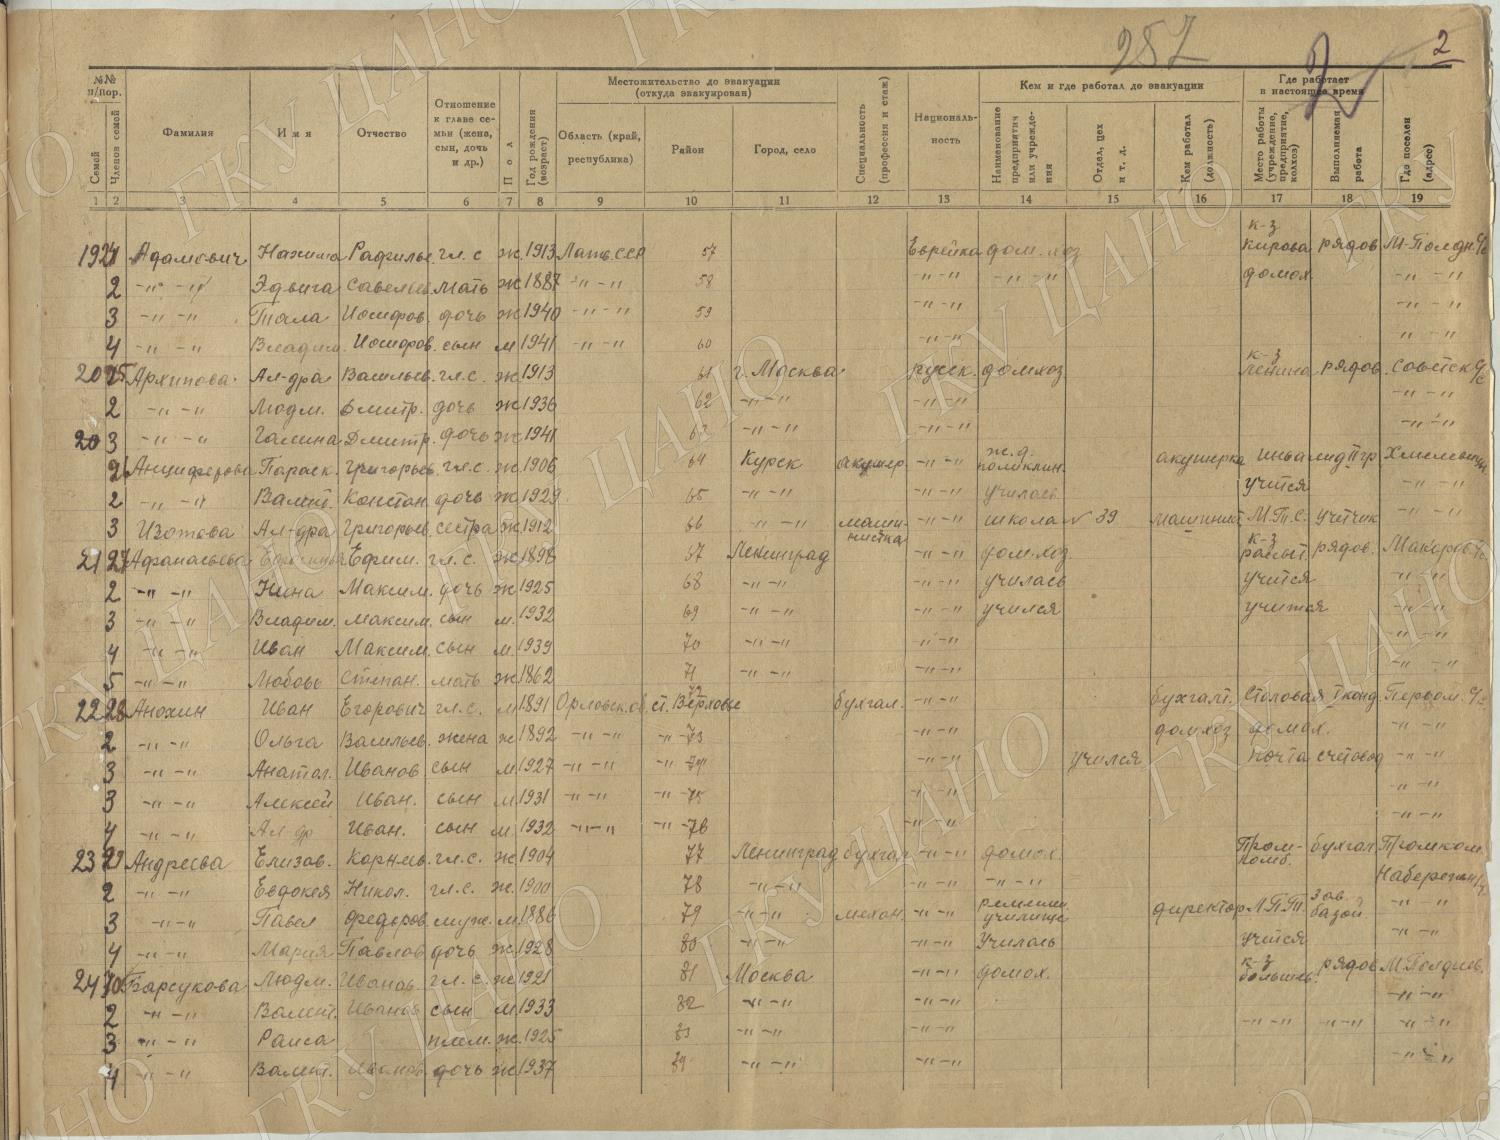 287 2
2
№№ п/пор.
Семей
Членов семей
Фамилия
Имя
Отчество
Отношение к главе семьи (жена, сын, дочь и др.)
Пол
Год рождения (возраст)
Местожительство до эвакуации (откуда эвакуирован)
Область (край, республика)
Район
Город, село
Специальность (профессия и стаж)
Националь-ность
Кем и где работал до эвакуации
Наименование предприятия или учрежде-ния
Отдел, цех и т. д.
Кем работал (должность)
Где работает в настоящее время
Место работы (учреждение, предприятие, колхоз)
Выполняемая работа
Где поселен (адрес)
1 2 3 4 5 6 7 8 9 10 11 12 13 14 15 16 17 18 19
19 Адамович гл.с ж. 1913 Латв.ССР 57 Еврейка дом.хоз к-з Кирова рядов М-Полдн. с/с
2 -"- -"- Эдвига Савельев. мать ж 1887 -"- -"- 58 -"- -"- -"- -"- домох. -"- -"-
3 -"- -"- Иосифов. дочь ж 1940 -"- -"- 59 -"- -"- -"- -"-
4 -"- -"- Владим. Иосифов. сын м 1941 -"- -"- 60 -"- -"- -"- -"-
20 25 Архипова Ал-дра Васильев. гл.с. ж. 1913 61 г. Москва русск. домхоз. к-з Ленина рядов. Советск с/с
2 -"- -"- Людм. Дмитр. дочь ж 1936 62 -"- -"- -"- -"- -"- -"-
20 3 -"- -"- Галина Дмитр. дочь ж 1941 63 -"- -"- -"- -"- -"- -"-
26 Анциферова Параск. Григорьев. гл.с. ж. 1906 64 Курск акушер -"- -"- ж.д. поликлин. акушерка инвалид II гр
2 -"- -"- Валент. Констан. дочь ж 1929 65 -"- -"- -"- -"- училась учится -"- -"-
3 Изотова Ал-дра Григорьев. сестра ж 1912 66 -"- -"- маши-нистка -"- -"- школа № 39 машинист. М.Т.С. учетчик -"- -"-
21 27 Афанасьева Ефим. гл.с. ж 1898 67 Ленинград -"- -"- дом.хоз. к-з рядов.
2 -"- -"- Нина Максим. дочь ж 1925 68 -"- -"- -"- -"- училась учится -"- -"-
3 -"- -"- Владим. Максим. сын м. 1932 69 -"- -"- -"- -"- учился учится -"- -"-
4 -"- -"- Иван Максим. сын м. 1939 70 -"- -"- -"- -"- -"- -"-
5 -"- -"- Любовь Степан. мать ж 1862 71 -"- -"- -"- -"- -"- -"-
22 28 Анохин Иван Егорович гл.с. м 1891 Орловск.об. 72 ст. Верховье бухгал. -"- -"- бухгалт. Столовая I конд Первом. с/с
2 -"- -"- Ольга Васильев. жена ж 1892 -"- -"- -"- 73 -"- -"- домхоз домох. -"- -"-
3 -"- -"- Анатол. Иванов сын м 1927 -"- -"- -"- 74 -"- -"- учился почта счетовод -"- -"-
3 -"- -"- Алексей Иван. сын м 1931 -"- -"- -"- 75 -"- -"- -"- -"-
4 -"- -"- Ал-др Иван. сын м 1932 -"- -"- -"- 76 -"- -"- -"- -"-
23 29 Андреева Елизав. Корнев. гл.с. ж 1904 77 Ленинград бухгал -"- -"- домох. Пром-комб. бухгал. Промком.
2 -"- -"- Евдокея Никол. гл.с. ж. 1900 78 -"- -"- -"- -"- -"- -"-
3 -"- -"- Павел Федоров. муж. м. 1886 79 -"- -"- механ. -"- -"- ремеслен. училище директор М.П.Т. Зав. базой -"- -"-
4 -"- -"- Мария Павлов дочь ж 1928 80 -"- -"- -"- -"- Училась учится -"- -"-
24 30 Барсукова Людм. Иванов. гл.с. ж 1921 81 Москва -"- -"- домох. к-з большев. рядов М.Полднев.
2 -"- -"- Валент. Иванов сын м 1933 82 -"- -"- -"- -"- -"- -"-
3 -"- -"- Раиса плем. ж. 1925 83 -"- -"- -"- -"- -"- -"- -"- -"- -"- -"-
4 -"- -"- Валент. Иванов дочь ж 1937 84 -"- -"- -"- -"- -"- -"-
ГКУ ЦАНО